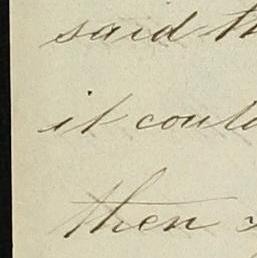 said th
it could
then